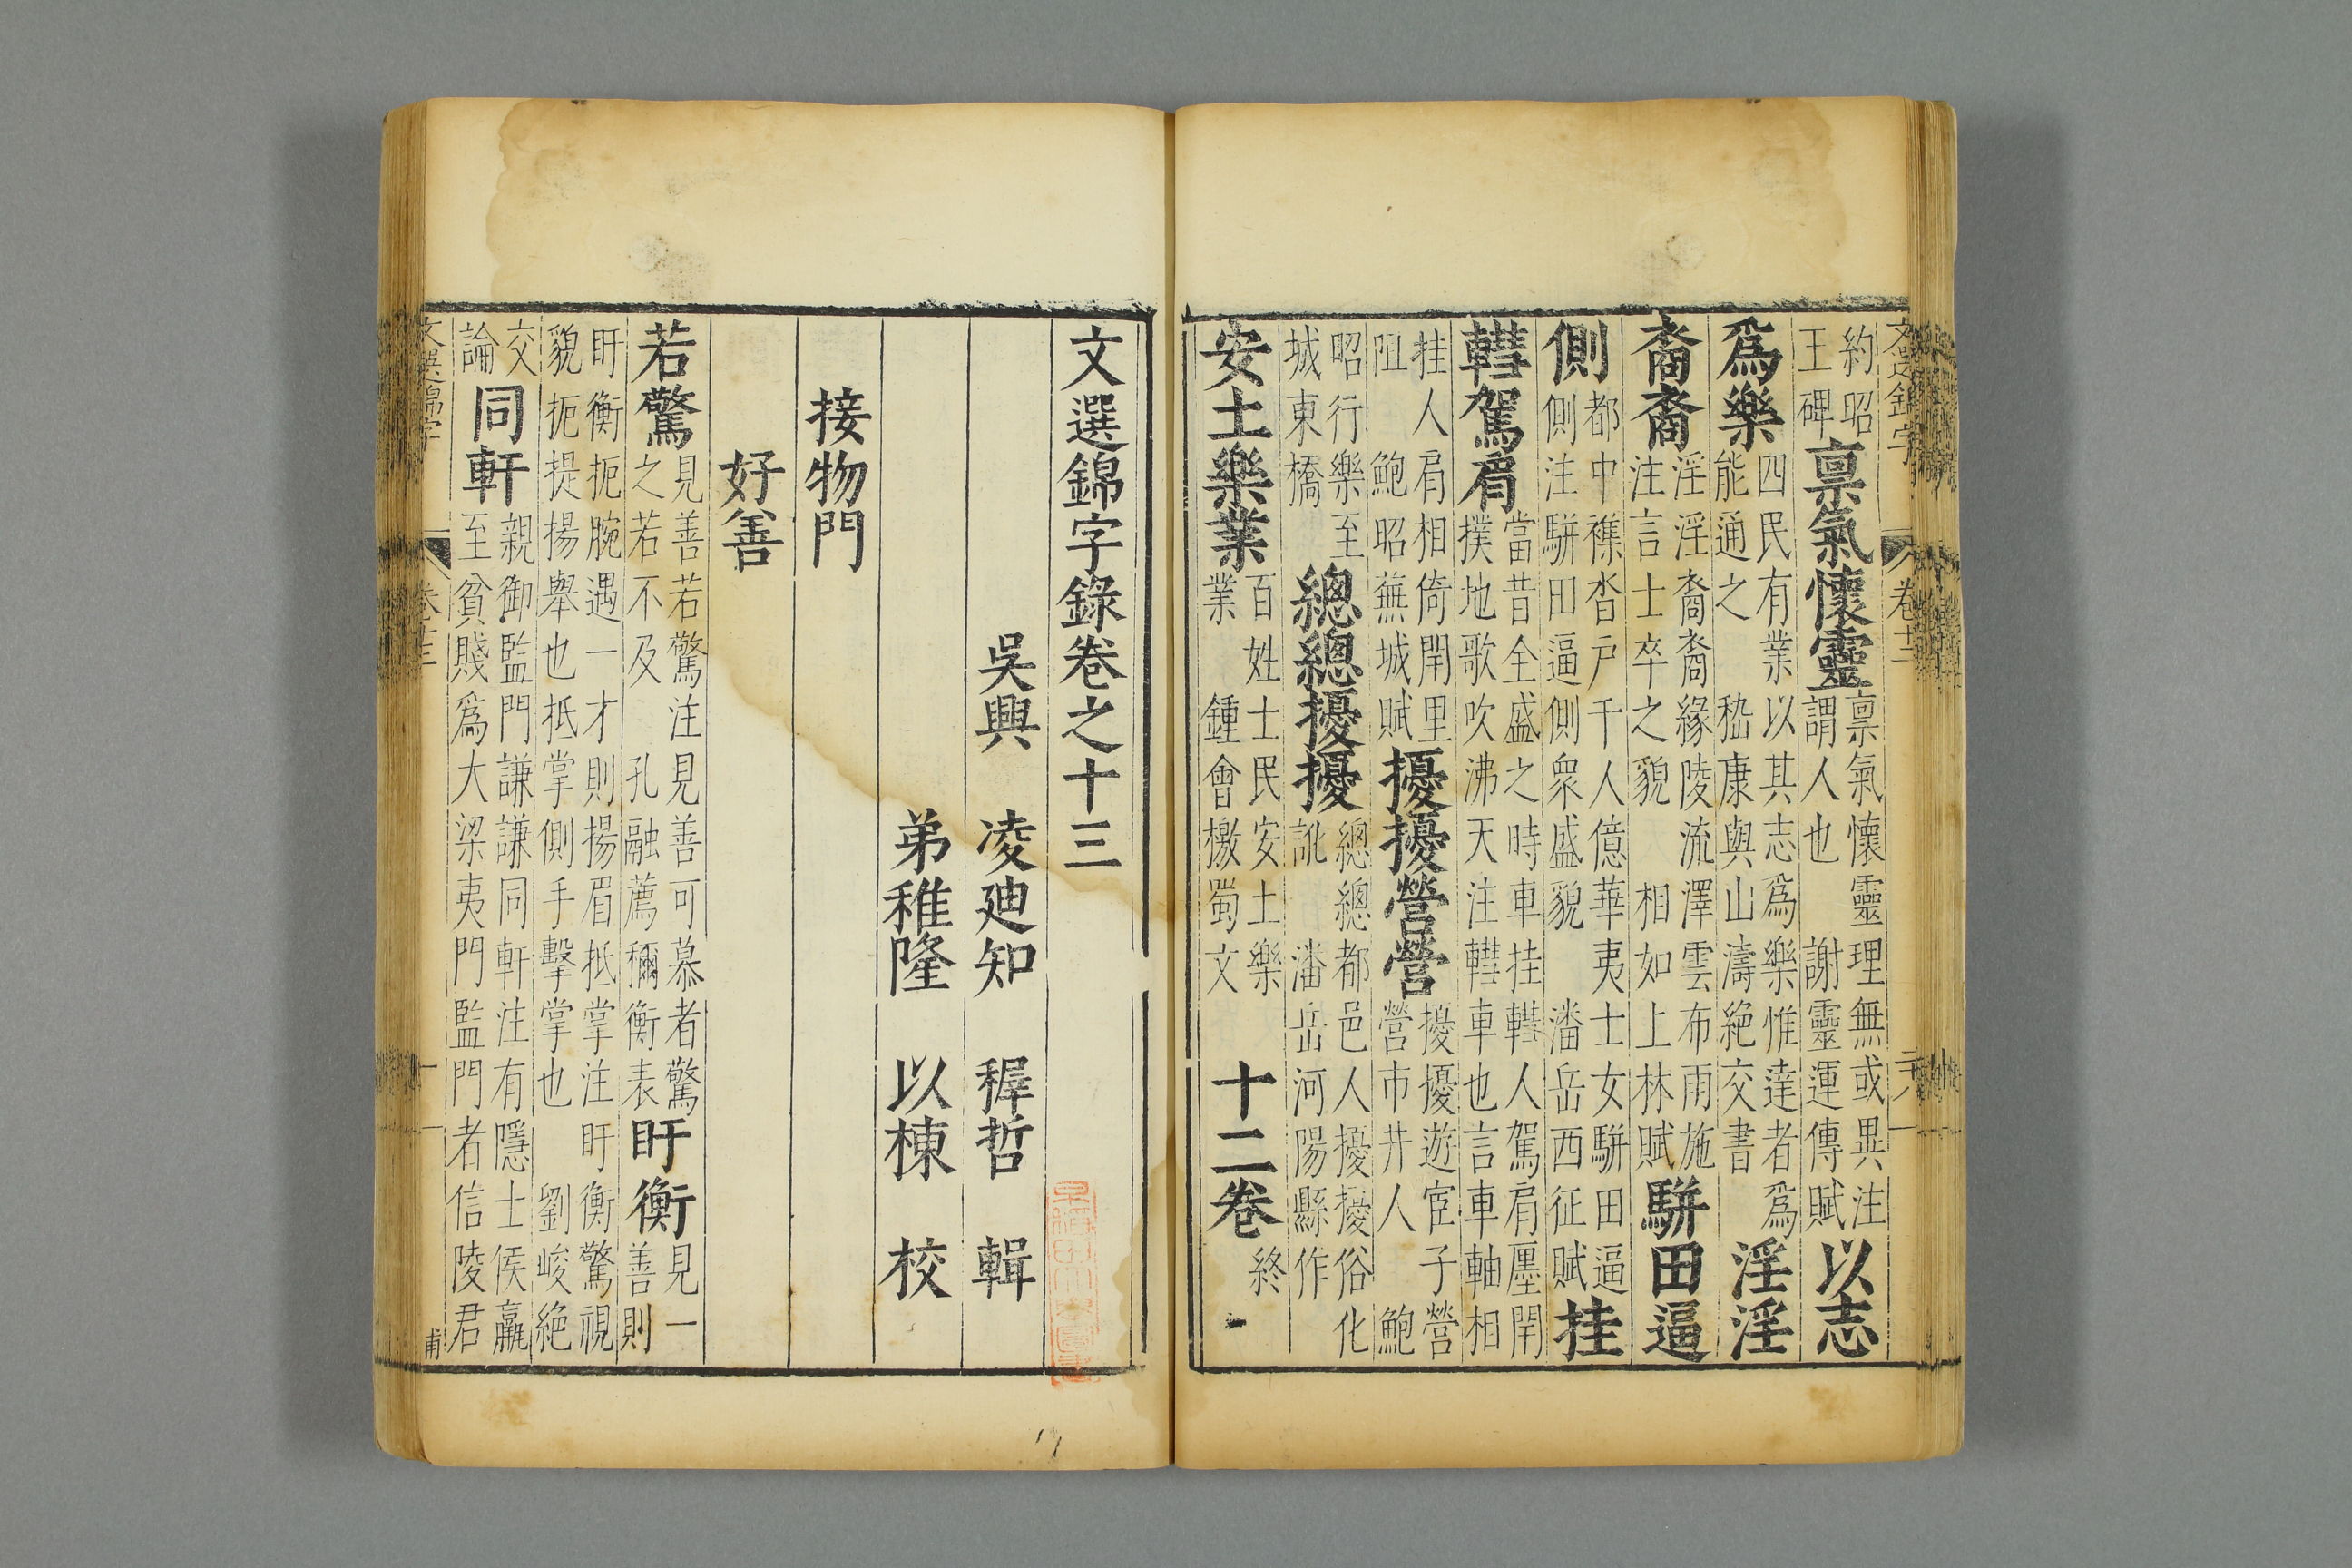 文選錦字
卷十二
二十八
約昭
王碑
禀氣懷靈
禀氣懷靈理無或異注
謂人也 謝靈運傳賦
以志
爲樂
四民有業以其志爲樂惟達者爲
能通之 嵇康與山濤絶交書
淫淫
裔裔
淫淫裔裔緣陵流澤雲布雨施
注言士卒之貌 相如上林賦
駢田逼
側
都中襍沓戶千人億華夷士女駢田逼
側側注駢田逼側衆盛貌 潘岳西征賦
挂
轊駕肩
當昔全盛之時車挂轊人駕肩廛閈
撲地歌吹沸天注轊車也言車軸相
挂人肩相倚閈里
阻 鮑昭蕪城賦
擾擾營營
擾擾遊宦子營
營市井人 鮑
昭行樂至
城東橋
總總擾擾
總總都邑人擾擾俗化
訛 潘岳河陽縣作
安土樂業
百姓士民安土樂
業 鍾會檄蜀文
十二卷
終
文選錦字錄卷之十三
吳興 凌廸知 穉哲 輯
弟稚隆 以棟 校
接物門
好善
若驚
見善若驚注見善可慕者驚
之若不及 孔融薦禰衡表
盱衡
見一
善則
盱衡扼腕遇一才則揚眉抵掌注盱衡驚視
貌扼提揚舉也抵掌側手擊掌也 劉峻絶
交
論
同軒
親御監門謙謙同軒注有隱士侯羸
至貧賤爲大梁夷門監門者信陵君
文選錦字
卷十三
一
甫